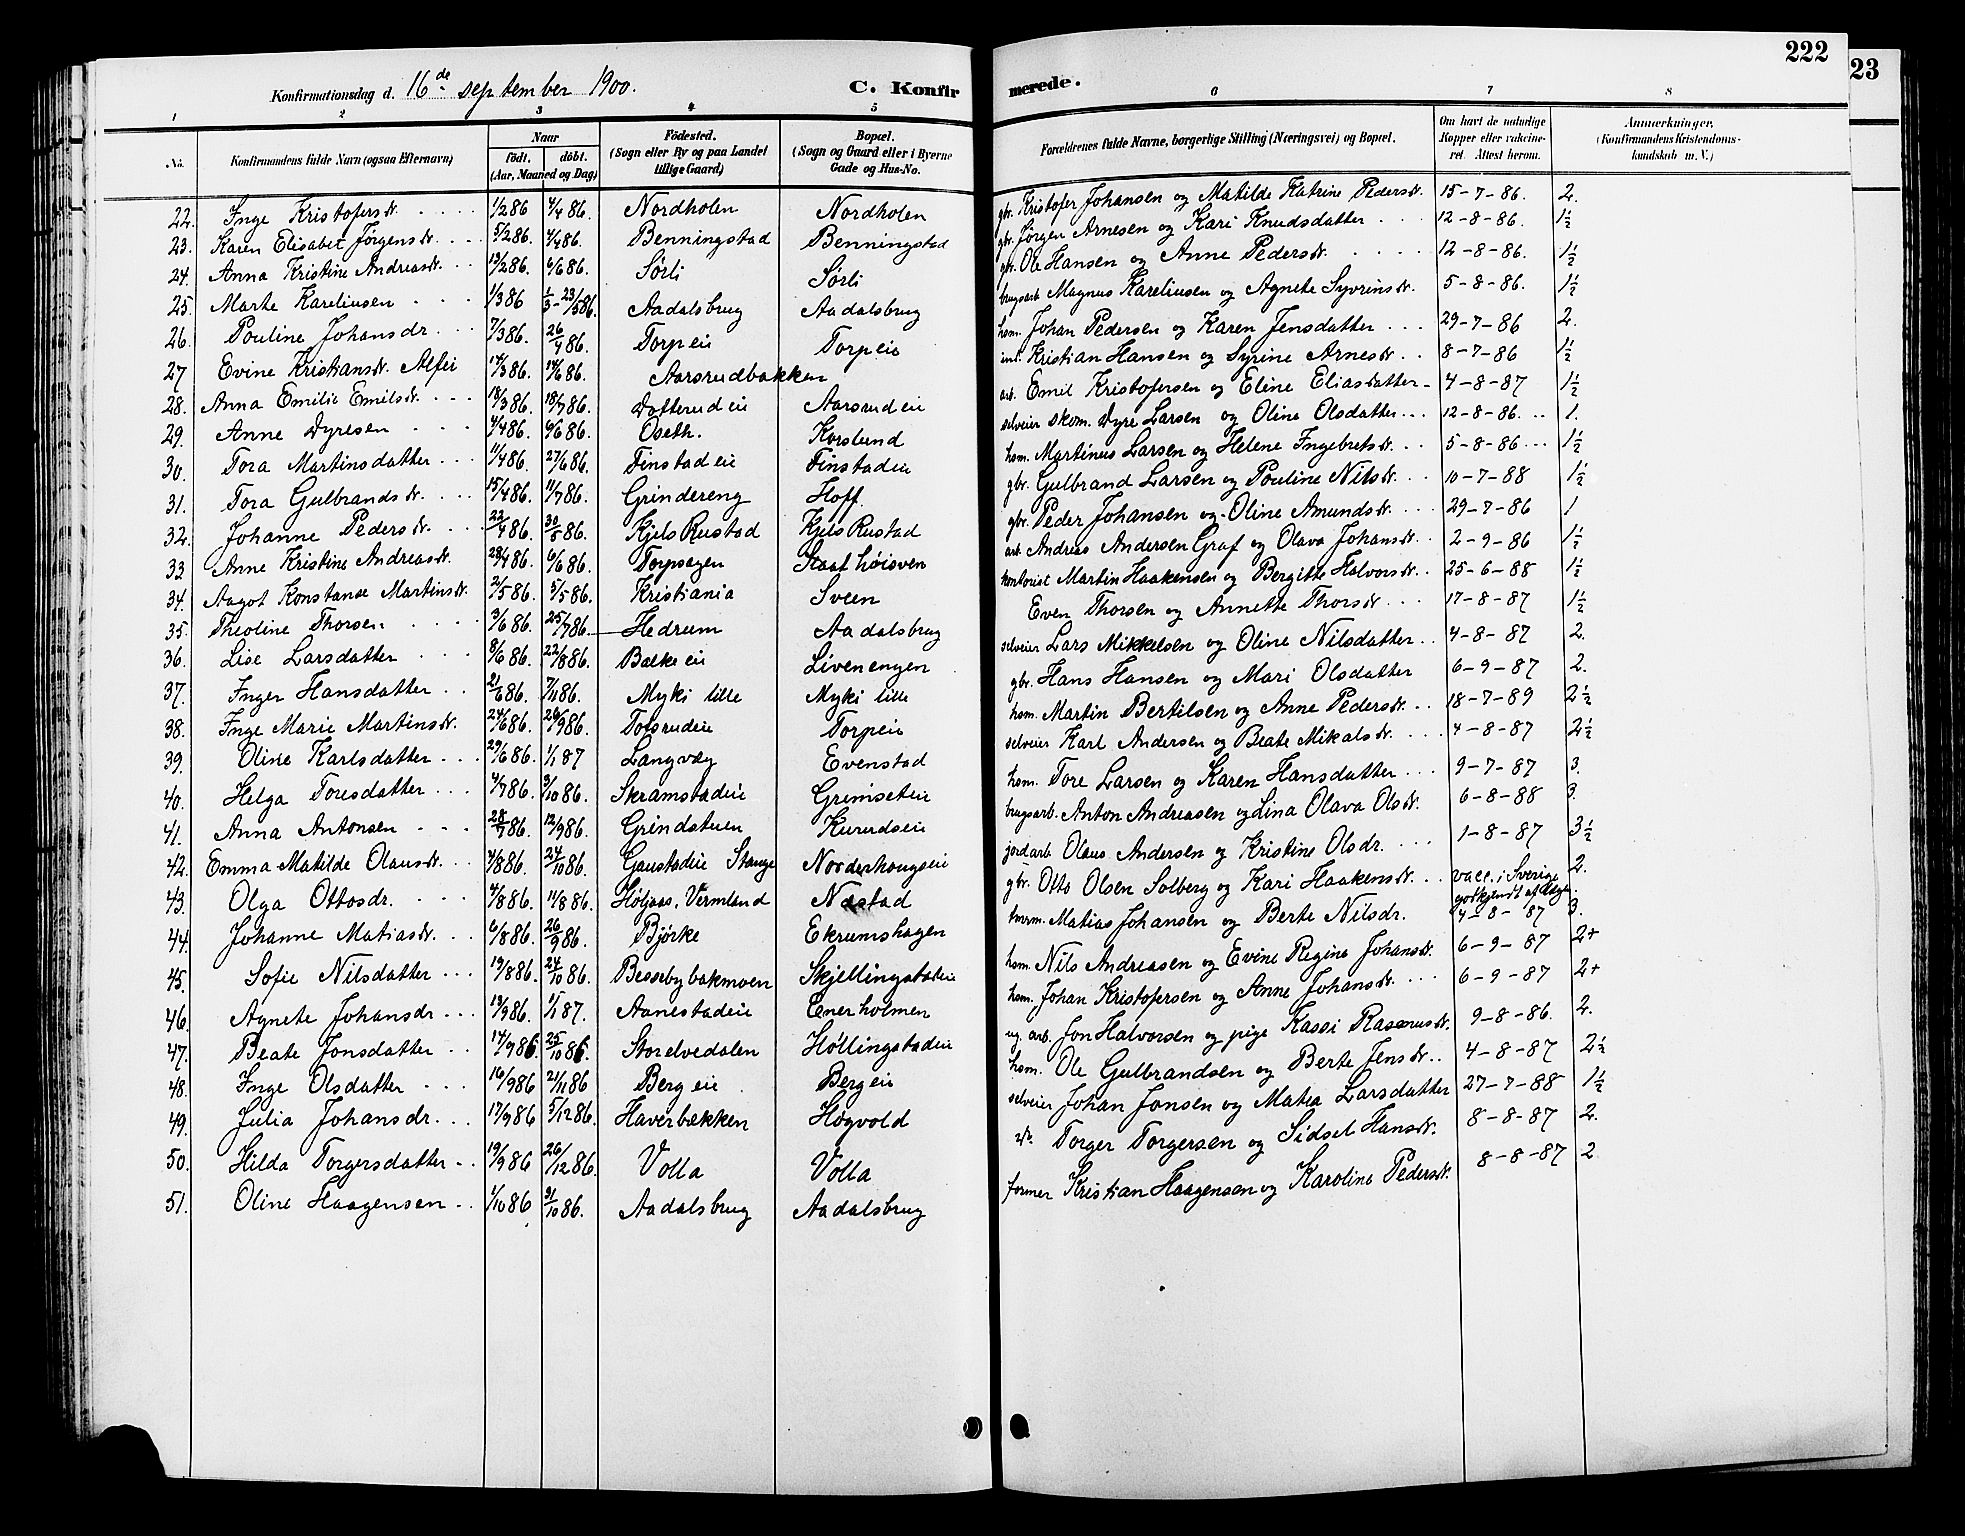 222
23
Konfirmationsdag d. 16de september 1900.
C. Konfirmerede.
1 2 3 4 5 6 7 8
No. Konfirmandens fulde Navn (ogsaa Efternavn) Naar födt. döbt. (Aar, Maaned og Dag) Födested. (Sogn eller By og paa Landet tillige Gaard) Bopæl. (Sogn og Gaard eller i Byerne Gade og Hus-No. Forældrenes fulde Navne, borgerlige Stilling (Næringsvei) og Bopæl. Om havt de naturlige Kopper eller vaccineret. Attest herom. Anmerkninger. (Konfirmandens Kristendomskundskab m. V.)
22. Inge Kristofersdr. 1/2 86 4/4 86. Nordholen Nordholen gbr. Kristofer Johansen og Matilde Katrine Pedersdr. 15-7-86. 2.
23. Karen Elisabet Jörgensdr. 5/2 86. 4/4 86. Benningstad Benningstad gbr. Jörgen Arnesen og Kari Knudsdatter 12-8-86. 1½
24. Anna Kristine Andreasdr. 13/2 86. 6/6 86. Sörli Sörli gbr. Ole Hansen og Anne Pedersdr. 12-8-86. 1½
25. Marte Kareliusen 1/3 86 1/3 - 23/5 86. Aadalsbrug Aadalsbrug brugsarb. Magnus Kareliusen og Agnete Syvrinsdr. 5-8-86. 1½
26. Pouline Johansdr. 7/3 86. 26/4 86. Torpeie Torpeie hsm. Johan Pedersen og Karen Jensdatter 29-7-86 2.
27 Evine Kristiansdr. Alfei 14/3 86. 14/6 86. Aarsrudbakken ind. Kristian Hansen og Syrine Arnesdr. 8-7-86 1½
28. Anna Emilie Emilsdr. 18/3 86. 18/7 86. Dofterudeie Aarsrudeie arb. Emil Kristofersen og Eline Eliasdatter 4-8-87 1½
29. Anne Dyresen 4/4 86. 6/6 86. Oseth. Korslund selveier skom. Dyre Larsen og Oline Olsdatter 12-8-86. 1.
30. Tora Martinsdatter 11/4 86. 27/6 86. Finstadeie Finstadeie hsm. Martinus Larsen og Helene Ingebretsdr. 5-8-86 1½
31. Tora Gulbrandsdr. 15/4 86. 11/7 86. Grindereng Hoff. gbr. Gulbrand Larsen og Pouline Nilsdr. 10-7-88 1½
32. Johanne Pedersdr. 22/4 86. 30/5 86. Kjels Rustad Kjels Rustad gbr. Peder Johansen og Oline Amundsdr. 29-7-86 1
33 Anne Kristine Andreasdr. 28/4 86. 6/6 86. Torpsagen Staafhöisven arb. Andreas Andersen Graf og Olava Johansdr. 2-9-86 1½
34. Aagot Konstanse Martinsdr. 2/5 86. 5/5 86. Kristiania Sveen kontorist Martin Haakensen og Bergitte Halvorsdr. 25-6-88 1½
35. Theoline Thorsen 3/6 86. 25/7 86. Hedrum Aadalsbrug Even Thorsen og Annette Thorsdr. 17-8-87 1½
36. Lise Larsdatter 8/6 86. 22/8 86. Balkeeie Livenengen selveier Lars Mikkelsen og Oline Nilsdatter 4-8-87 2.
37. Inger Hansdatter 21/6 86. 7/11 86. Myki lille Myki lille gbr. Hans Hansen og Mari Olsdatter 6-9-87 2.
38. Inge Marie Martinsdr. 24/6 86. 26/9 86. Tofsrudeie Torpeie hsm. Martin Bertilsen og Anne Pedersdr. 18-7-89 2½
39. Oline Karlsdatter 29/6 86. 1/1 87 Langvæg Evenstad selveier Karl Andersen og Beate Mikalsdr. 4-8-87 2½
40. Helga Toresdatter 4/7 86. 3/10 86. Skramstadeie Grimseteie hsm. Tore Larsen og Karen Hansdatter 9-7-87 3.
41. Anna Antonsen 28/7 86. 12/9 86. Grindstuen Kurudseie brugsarb. Anton Andreasen og Lina Olava Olsdr. 6-8-88 3.
42. Emma Matilde Olausdr. 4/8 86. 24/10 86. Gaustadeie Stange Norderhougseie jordarb. Olaus Andersen og Kristine Olsdr. 1-8-87 3½
43. Olga Ottosdr. 4/8 86. 11/8 86. Höljaas, Vermland Næstad gbr. Otto Olsen Solberg og Kari Haakensdr. vacc. i Sverige godkjendt af læge. 2.
44. Johanne Matiasdr. 6/8 86. 26/9 86. Bjørke Ekrumshagen tmrm. Matias Johansen og Berte Nilsdr. 4-8-87 3.
45. Sofie Nilsdatter 19/8 86. 24/10 86. Bessebybakmoen Skjellingstadeie hsm. Nils Andreasen og Evine Regine Johansdr. 6-9-87 2+
46. Agnete Johansdr 13/9 86. 1/1 87. Aanestadeie Enerholmen hsm. Johan Kristofersen og Anne Johansdr. 6-9-87 2+
47. Beate Jonsdatter 14/9 86. 25/10 86. Storelvedalen Höllingstadeie ug. arb. Jon Halvorsen og pige Kassi Rasmusdr. 9-8-86. 2.
48. Inge Olsdatter 16/9 86 21/11 86 Bergeie Bergeie hsm. Ole Gulbrandsen og Berte Jensdr. 4-8-87 2½
49. Julia Johansdr. 17/9 86 5/12 86. Haverbækken Høgvold selveier Johan Jonsen og Matea Larsdatter 27-7-88 1½
50. Hilda Torgersdatter 19/9 86 26/12 86. Volla Volla Torger Torgersen og Sidsel Hansdr. 8-8-87 2.
51. Oline Haagensen 1/10 86 31/10 86. Aadalsbrug Aadalsbrug former Kristian Haagensen og Karoline Pedersdr. 8-8-87 2